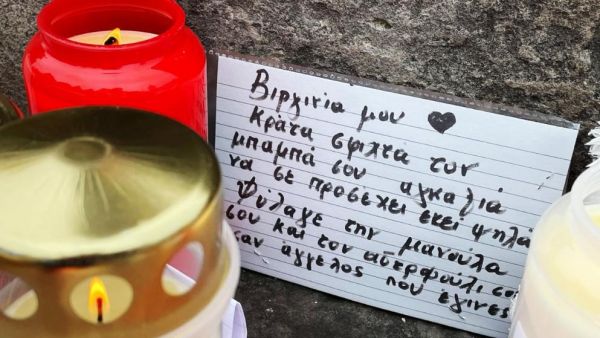 Βιργινία μου ♥
κράτα σφιχτα τον
μπαμπά σου αγκαλιά
να σε προσέχει εκεί ψηλά
Φύλαγε την μανούλα
σου και τον αδερφούλι σου
σαν άγγελος που έγινες